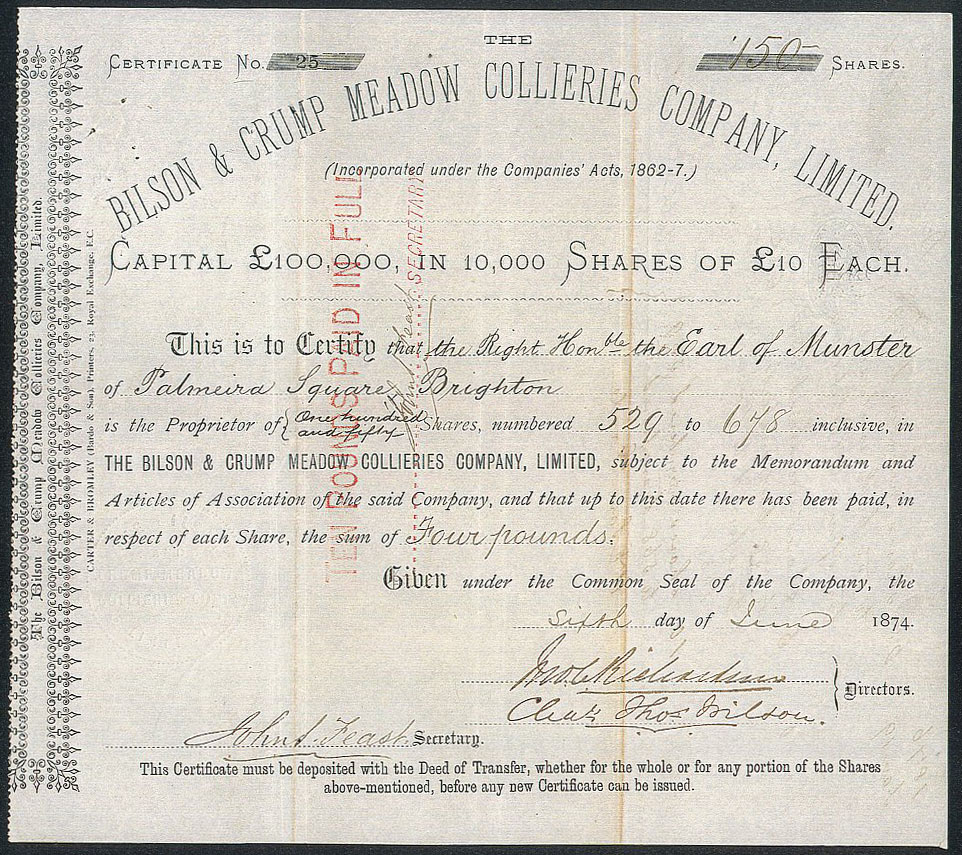 THE
CERTIFICATE No. 25
150 SHARES.
BILSON & CRUMP MEADOW COLLIERIES COMPANY, LIMITED.
(Incorporated under the Companies' Acts, 1862-7.)
CAPITAL £100,000, IN 10,000 SHARES OF £10 EACH.
This is to Certify that the Right Honble the Earl of Munster
of Palmeira Square Brighton
is the Proprietor of {One hundred and fifty Shares, numbered 529 to 678 inclusive, in
THE BILSON & CRUMP MEADOW COLLIERIES COMPANY, LIMITED, subject to the Memorandum and
Articles of Association of the said Company, and that up to this date there has been paid, in
respect of each Share, the sum of Four pounds.
Given under the Common Seal of the Company, the
sixth day of June 1874.
Directors.
John S. Feast Secretary.
This Certificate must be deposited with the Deed of Transfer, whether for the whole or for any portion of the Shares
above-mentioned, before any new Certificate can be issued.
TEN POUNDS PAID IN FULL
SECRETARY
The Bilson & Crump Meadow Collieries Company, Limited.
CARTER & BROMLEY (Bardo & Son), Printers, 23, Royal Exchange, E.C.